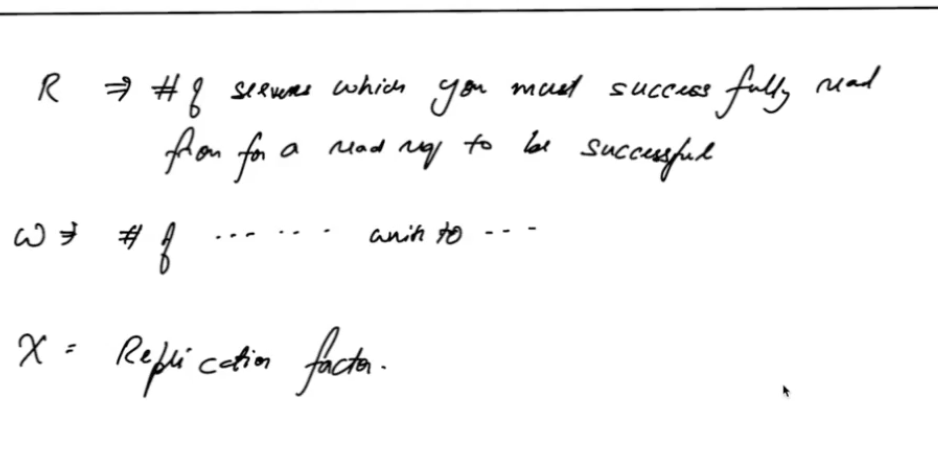 R ⇒ # of servers which you must successfully read
from for a read req to be successful
W ⇒ # of ... ... write to ...
X = Replication factor.